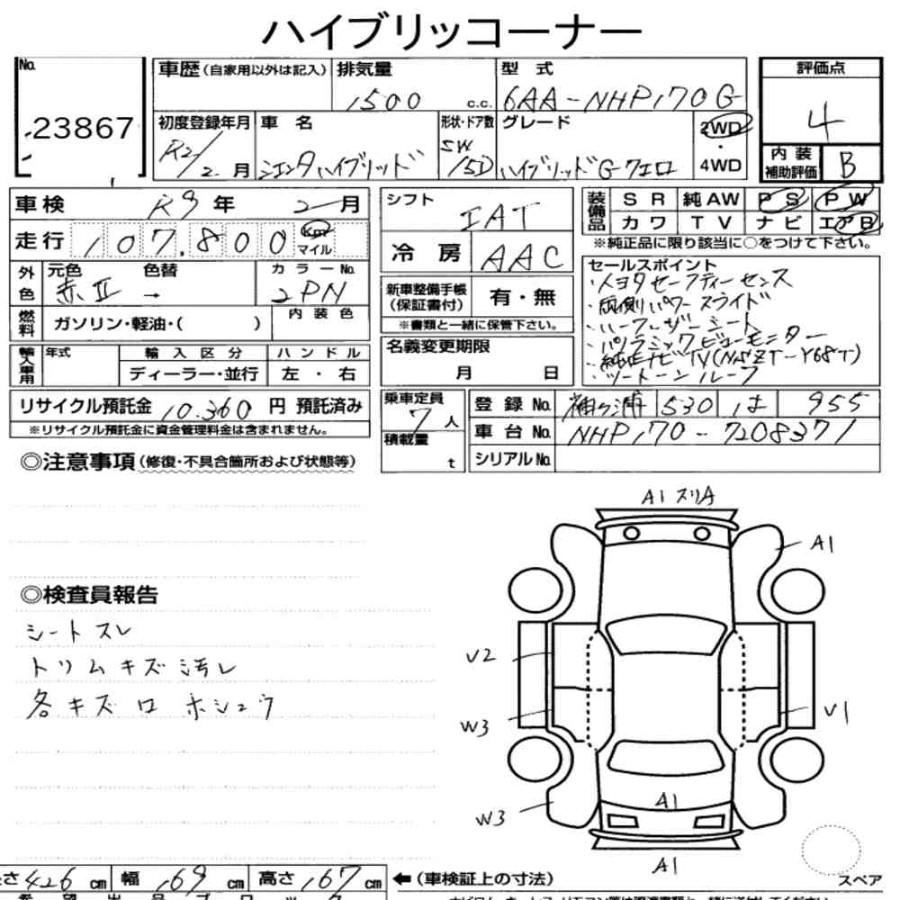 ハイブリッコーナー
No. 23867
車歴 (自家用以外は記入) 排気量 1500 c.c. 型式 6AA-NHP170G
評価点 4
初度登録年月 R2/2.月 車名 シエンタハイブリッド 形状・ドア数 SW/5D グレード ハイブリッドG・クエロ 2WD・4WD
内装補助評価 B
車検 R9年 2月
走行 107,800 Km マイル
シフト IAT
冷房 AAC
装備品 SR 純AW PS PW
カワ TV ナビ エアB
※純正品に限り該当に○をつけて下さい。
外色 元色 赤II 色替 → カラーNo. 2PN
燃料 ガソリン・軽油・( ) 内装色
新車整備手帳 (保証書付) 有・無
※書類と一緒に保管下さい。
セールスポイント
・トヨタセーフティーセンス
・両側パワースライド
・ハーフレザーシート
・パノラミックビューモニター
・純正ナビTV(NSZT-Y68T)
・ツートーンルーフ
輸入車用 年式 輸入区分 ハンドル
ディーラー・並行 左・右
名義変更期限 月 日
リサイクル預託金 10,360 円 預託済み
※リサイクル預託金に資金管理料金は含まれません。
乗車定員 7人
積載量 t
登録No. 袖ヶ浦 530 は 955
車台No. NHP170-7208371
シリアルNo.
◎注意事項 (修復・不具合箇所および状態等)
◎検査員報告
シートスレ
トリムキズ汚レ
各キズロホシュウ
A1 スリA
A1
U2
W3
U1
W3
A1
A1
スペア
長さ 426 cm 幅 169 cm 高さ 167 cm ←(車検証上の寸法)